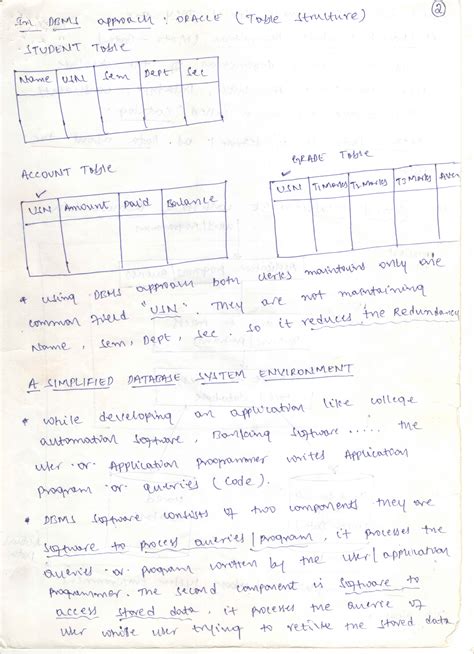 In DBMS approach : ORACLE ( Table Structure)
2
STUDENT Table
Name USN Sem Dept Sec
GRADE Table
ACCOUNT Table
USN Amount Paid Balance
USN T1Marks T2Marks T3Marks Aver
* Using DBMS approach both clerks maintains only one
common field "USN". They are not maintaining
Name, Sem, Dept, Sec. So it reduces the Redundancy
A SIMPLIFIED DATABASE SYSTEM ENVIRONMENT
* While developing an application like college
automation software, Banking software ..... the
user or Application Programmer writes Application
program or queries (code).
* DBMS software consists of two components they are
software to process queries/program, it processes the
queries or program written by the user/application
Programmer. The second component is software to
access stored data, it processes the querie of
user while user trying to retrive the stored data